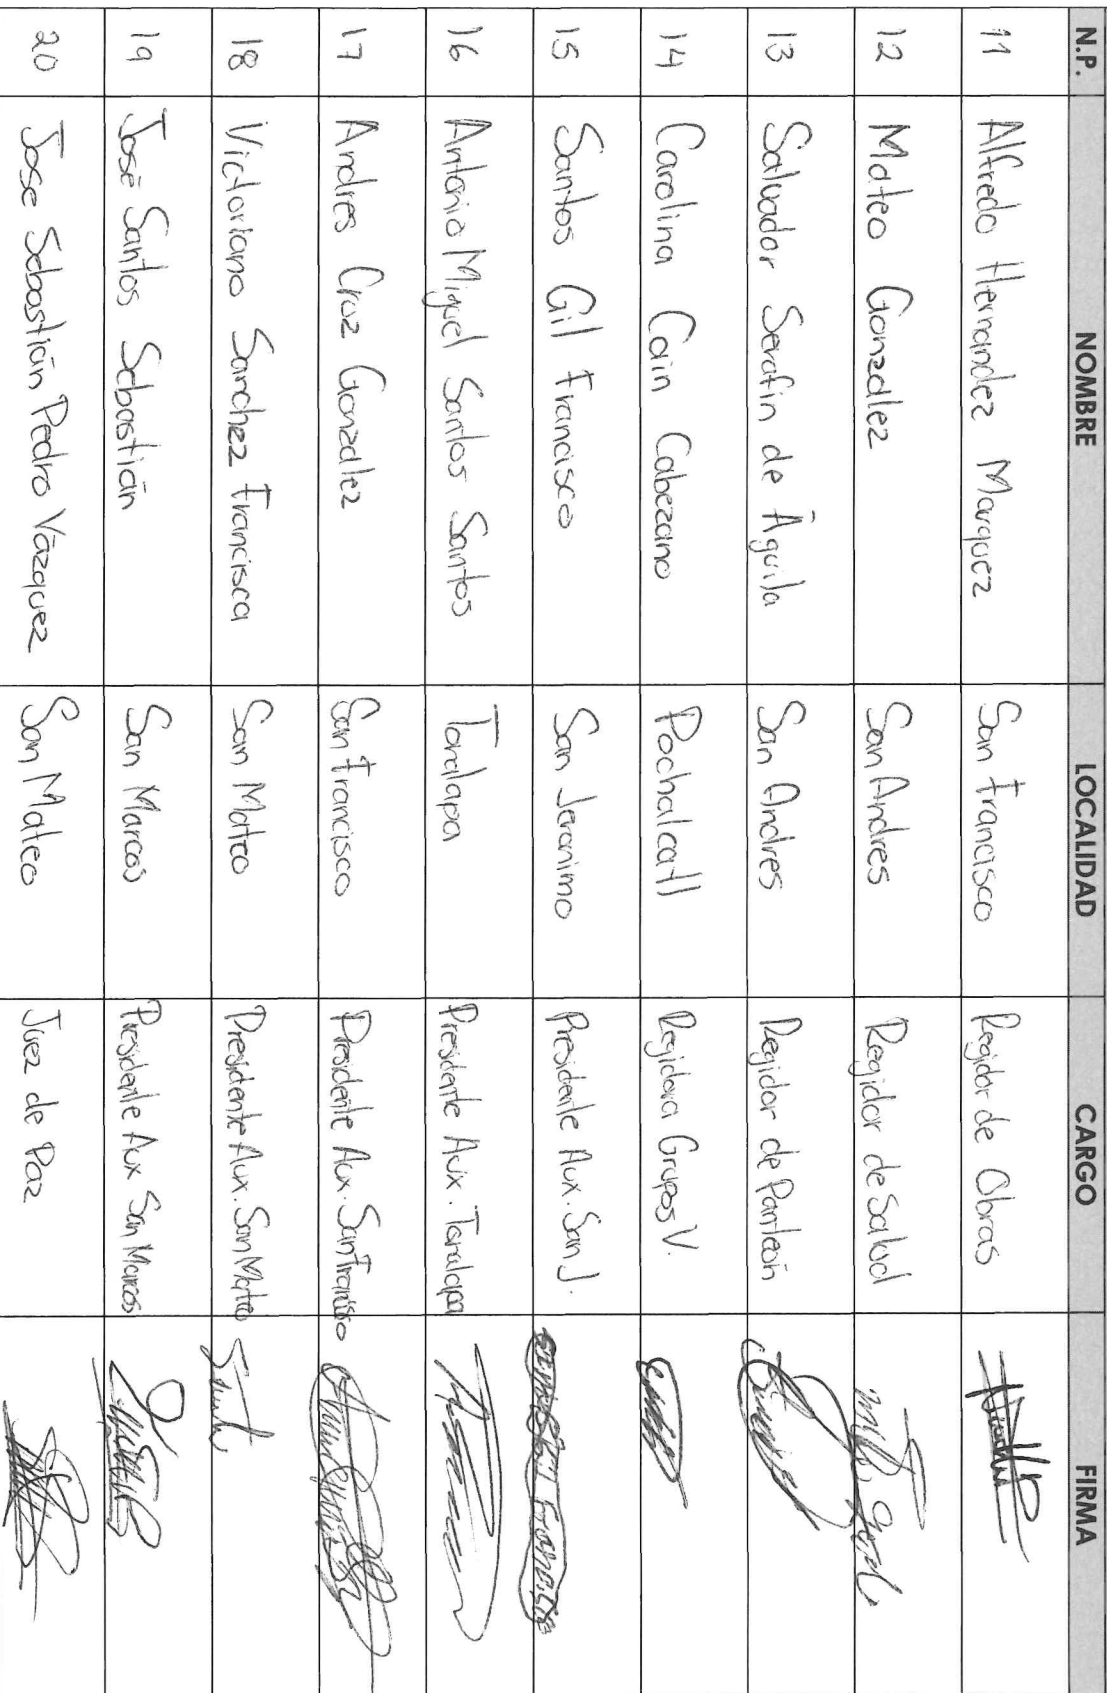 N.P. NOMBRE LOCALIDAD CARGO FIRMA
11 Alfredo Hernandez Marquez San Francisco Regidor de Obras
12 Mateo González San Andres Regidor de Salud
13 Salvador Serafin de Aguila San Andres Regidor de Panteón
14 Carolina Cain Cabezano Pochalcatl Regidora Grupos V.
15 Santos Gil Francisco San Jeronimo Presidente Aux. San J.
16 Antonio Miguel Santos Santos Tonalapa Presidente Aux. Tonalapa
17 Andres Cruz González San Francisco Presidente Aux. San Fransisco
18 Victoriano Sanchez Francisca San Mateo Presidente Aux. San Mateo
19 José Santos Sebastián San Marcos Presidente Aux San Marcos
20 Jose Sebastián Pedro Vázquez San Mateo Juez de Paz